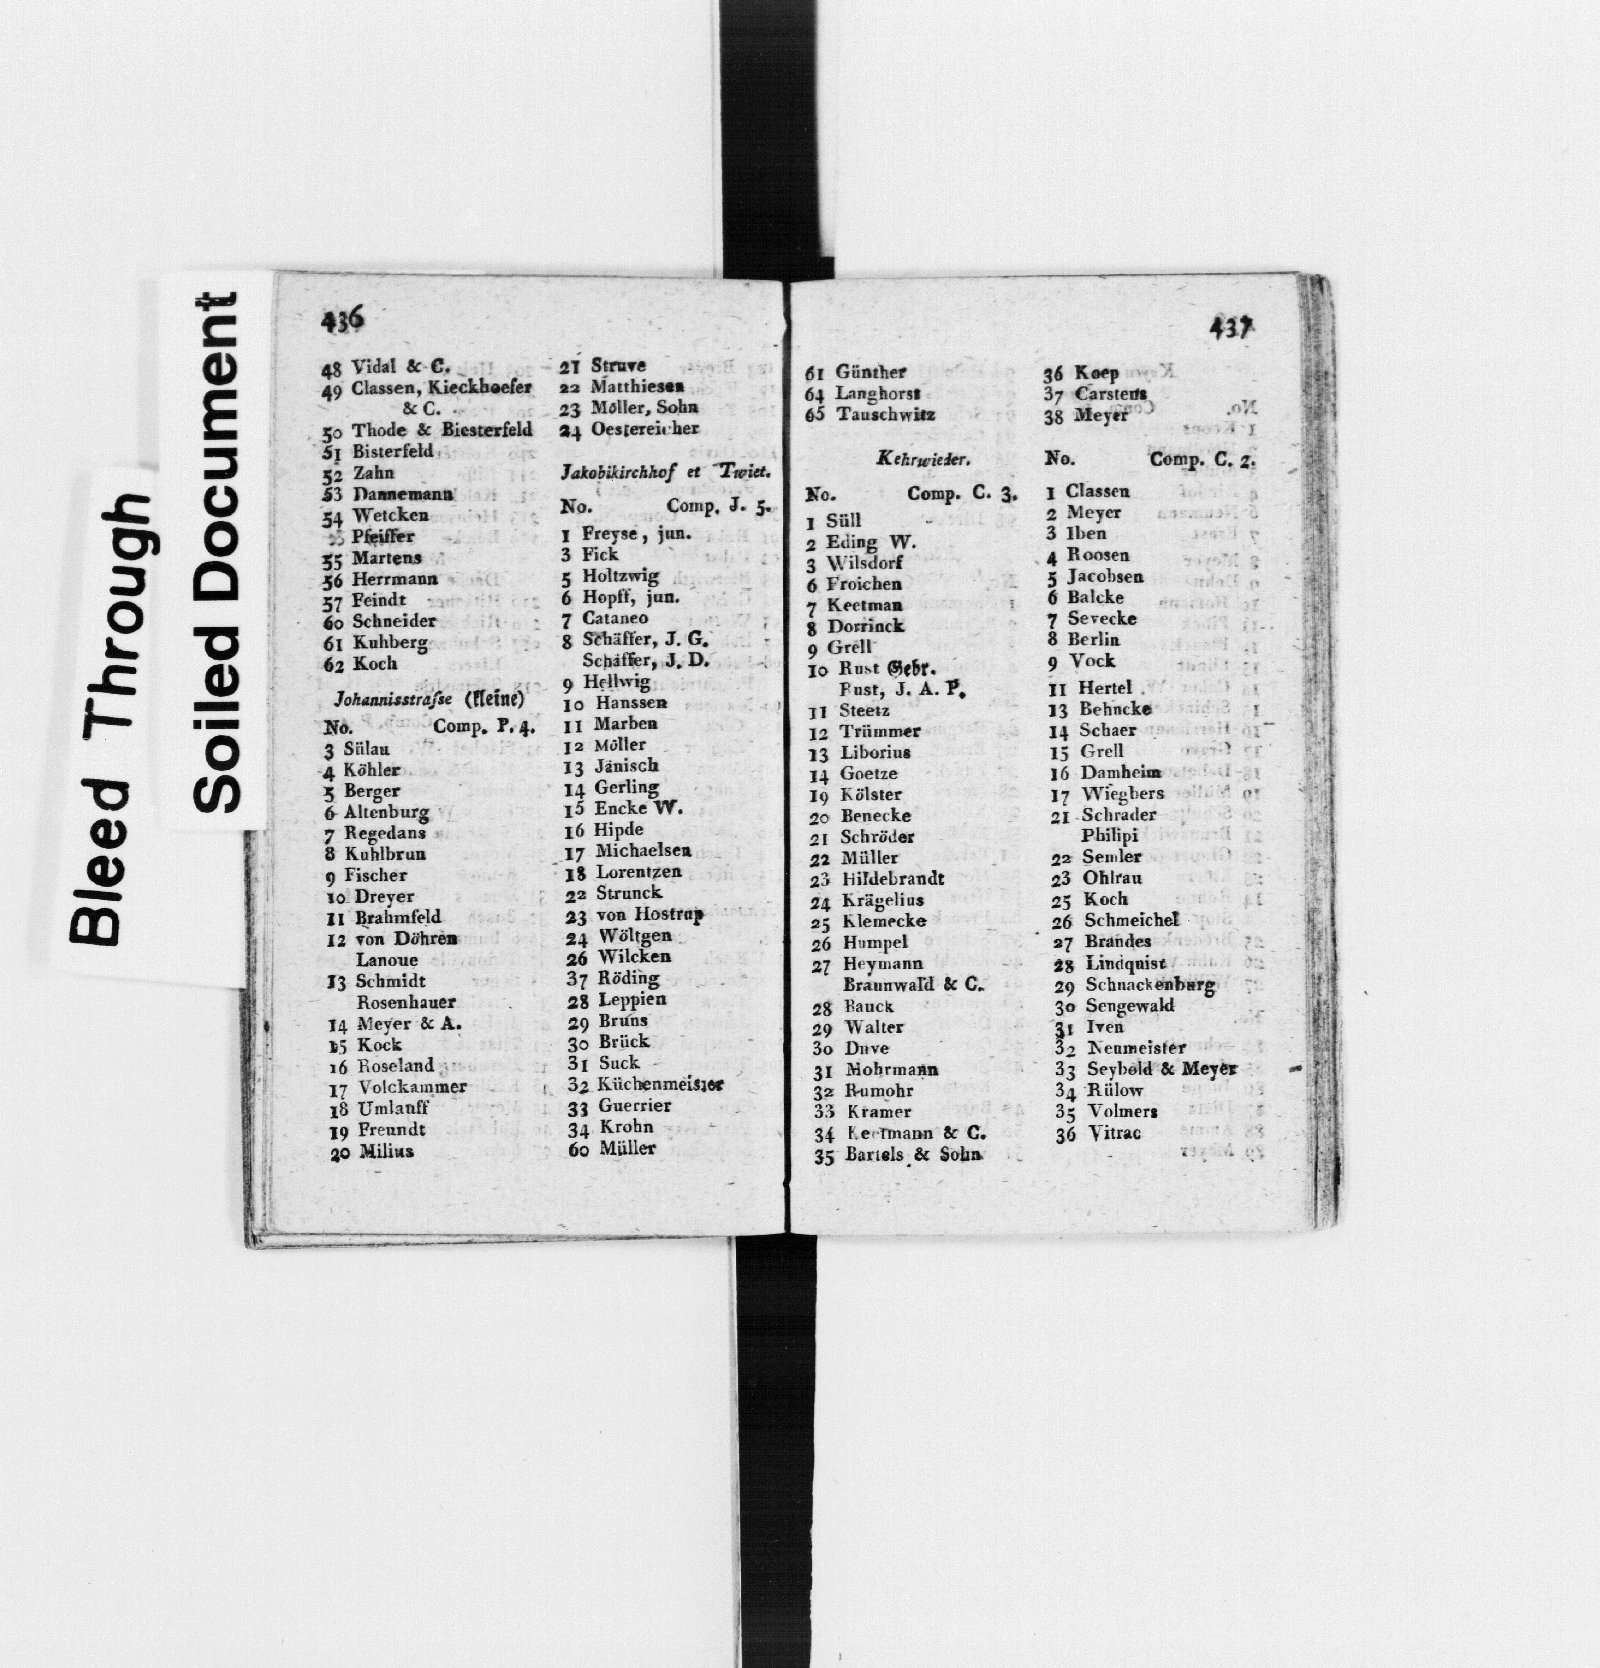 Bleed Through
Soiled Document
436
48 Vidal & C.
49 Classen, Kieckhoefer
& C.
50 Thode & Biesterfeld
51 Bisterfeld
52 Zahn
53 Dannemann
54 Wetcken
Pfeiffer
55 Martens
56 Herrmann
57 Feindt
60 Schneider
61 Kuhberg
62 Koch
Johannisstraſse (kleine)
No. Comp. P. 4.
3 Sülau
4 Köhler
5 Berger
6 Altenburg
7 Regedans
8 Kuhlbrun
9 Fischer
10 Dreyer
11 Brahmfeld
12 von Döhren
Lanoue
13 Schmidt
Rosenhauer
14 Meyer & A.
15 Kock
16 Roseland
17 Volckammer
18 Umlauff
19 Freundt
20 Milius
21 Struve
22 Matthiesen
23 Möller, Sohn
24 Oestereicher
Jakobikirchhof et Twiet.
No. Comp. J. 5.
1 Freyse, jun.
3 Fick
5 Holtzwig
6 Hopff, jun.
7 Cataneo
8 Schäffer, J. G.
Schäffer, J. D.
9 Hellwig
10 Hanssen
11 Marben
12 Möller
13 Jänisch
14 Gerling
15 Encke W.
16 Hipde
17 Michaelsen
18 Lorentzen
22 Strunck
23 von Hostrup
24 Wöltgen
26 Wilcken
37 Röding
28 Leppien
29 Bruns
30 Brück
31 Suck
32 Küchenmeister
33 Guerrier
34 Krohn
60 Müller
437
61 Günther
64 Langhorst
65 Tauschwitz
Kehrwieder.
No. Comp. C. 3.
1 Süll
2 Eding W.
3 Wilsdorf
6 Froichen
7 Keetman
8 Dorrinck
9 Grell
10 Rust Gebr.
Rust, J. A. P.
11 Steetz
12 Trümmer
13 Liborius
14 Goetze
19 Kölster
20 Benecke
21 Schröder
22 Müller
23 Hildebrandt
24 Krägelius
25 Klemecke
26 Humpel
27 Heymann
Braunwald & C.
28 Bauck
29 Walter
30 Duve
31 Mohrmann
32 Rumohr
33 Kramer
34 Keetmann & C.
35 Bartels & Sohn
36 Koep
37 Carstens
38 Meyer
No. Comp. C. 2.
1 Classen
2 Meyer
3 Iben
4 Roosen
5 Jacobsen
6 Balcke
7 Sevecke
8 Berlin
9 Vock
11 Hertel
13 Behncke
14 Schaer
15 Grell
16 Damheim
17 Wiegbers
21 Schrader
Philipi
22 Semler
23 Ohlrau
25 Koch
26 Schmeichel
27 Brandes
28 Lindquist
29 Schnackenburg
30 Sengewald
31 Iven
32 Neumeister
33 Seybold & Meyer
34 Rülow
35 Volmers
36 Vitrac